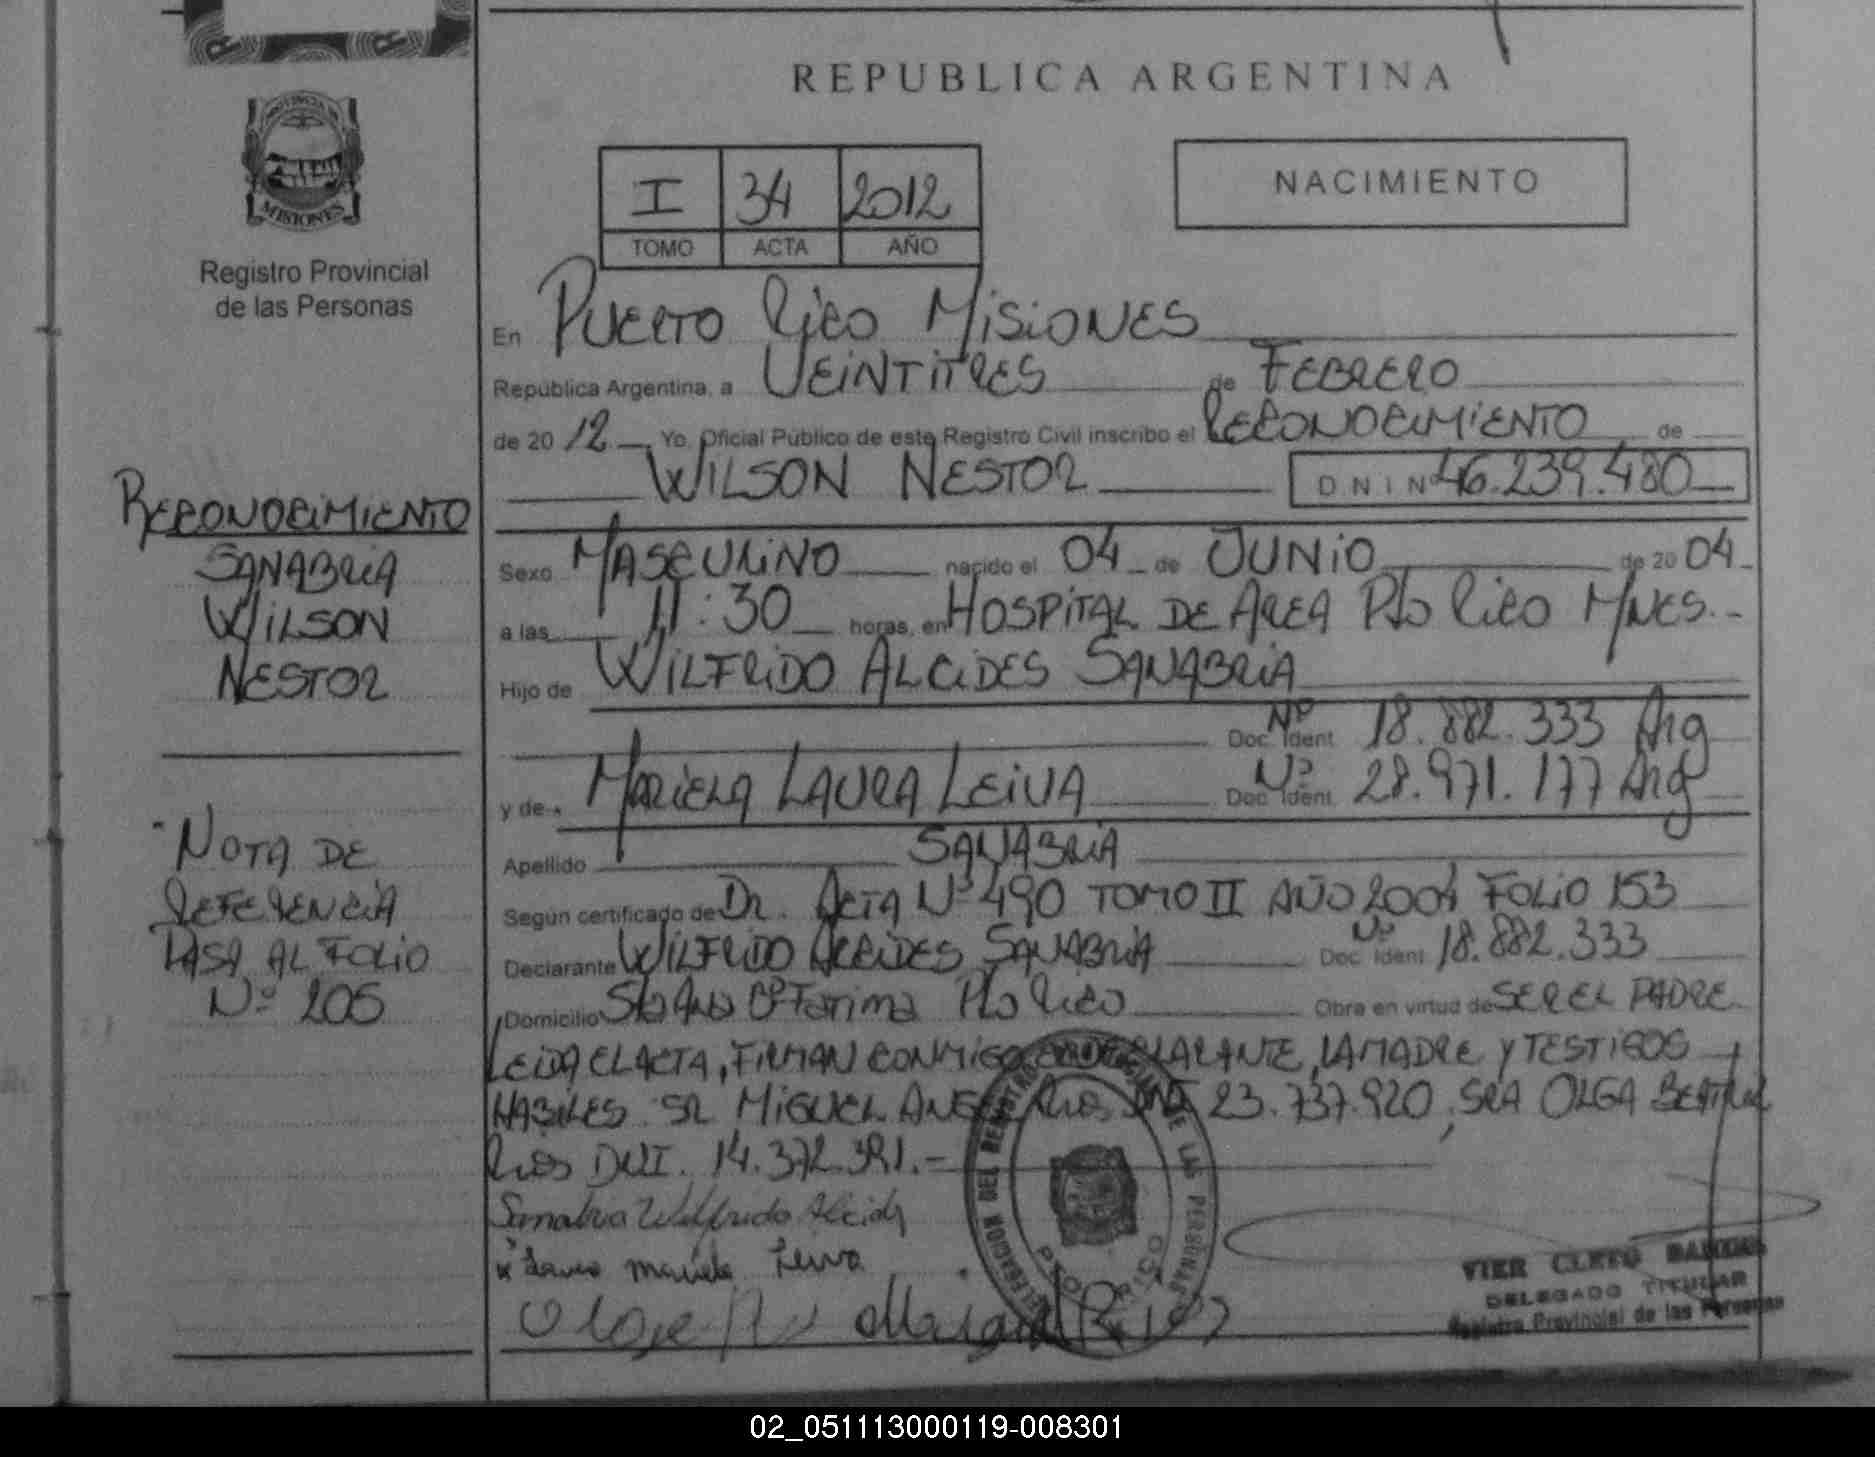 REPUBLICA ARGENTINA
PROVINCIA DE
MISIONES
Registro Provincial
de las Personas
I 34 2012
TOMO ACTA AÑO
NACIMIENTO
En PUERTO RICO MISIONES
República Argentina, a VEINTITRES de FEBRERO
de 20 12 Yo, Oficial Público de este Registro Civil inscribo el RECONOCIMIENTO de
WILSON NESTOR D N I Nº 46.239.480
Sexo MASCULINO nacido el 04 de JUNIO de 20 04
a las 11:30 horas, en HOSPITAL DE AREA Pto Rico Mnes.
Hijo de WILFRIDO ALCIDES SANABRIA
Doc. Ident. Nº 18.882.333 Arg
y de MARIELA LAURA LEIVA Doc. Ident. Nº 28.971.177 Arg
Apellido SANABRIA
Según certificado de Dr. ACTA Nº 490 TOMO II AÑO 2004 FOLIO 153
Declarante WILFRIDO ALCIDES SANABRIA Doc. Ident. Nº 18.882.333
Domicilio Sta Ana Fatima Pto Rico Obra en virtud de SER EL PADRE
LEIDA EL ACTA, FIRMAN CONMIGO EL DECLARANTE, LA MADRE Y TESTIGOS
HABILES: SR MIGUEL ANGEL Rios DNI 23.737.920, SRA OLGA BEATRIZ
Rios DNI. 14.372.391.-
Sanabria Wilfrido Alcides
Laura Mariela Leiva
DELEGACION DEL REGISTRO PROVINCIAL DE LAS PERSONAS
PTO. RICO
DELEGADO TITULAR
Registro Provincial de las Personas
RECONOCIMIENTO
SANABRIA
WILSON
NESTOR
NOTA DE
REFERENCIA
PASA AL FOLIO
Nº 205
02_051113000119-008301